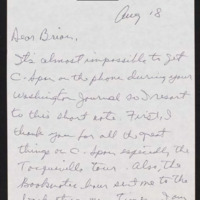 Aug 18
Dear Brian,
It's almost impossible to get
C-Span on the phone during your
Washington Journal so I resort
to this short note. First, I
thank you for all the great
things on C-Span especially the
Tocqueville tour. Also, the
Booknotes hour sent me to the